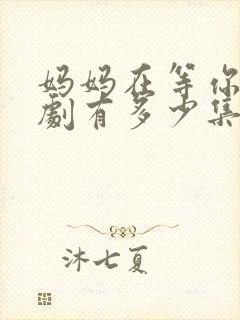 妈妈在等你
劇有多少集
沐七夏